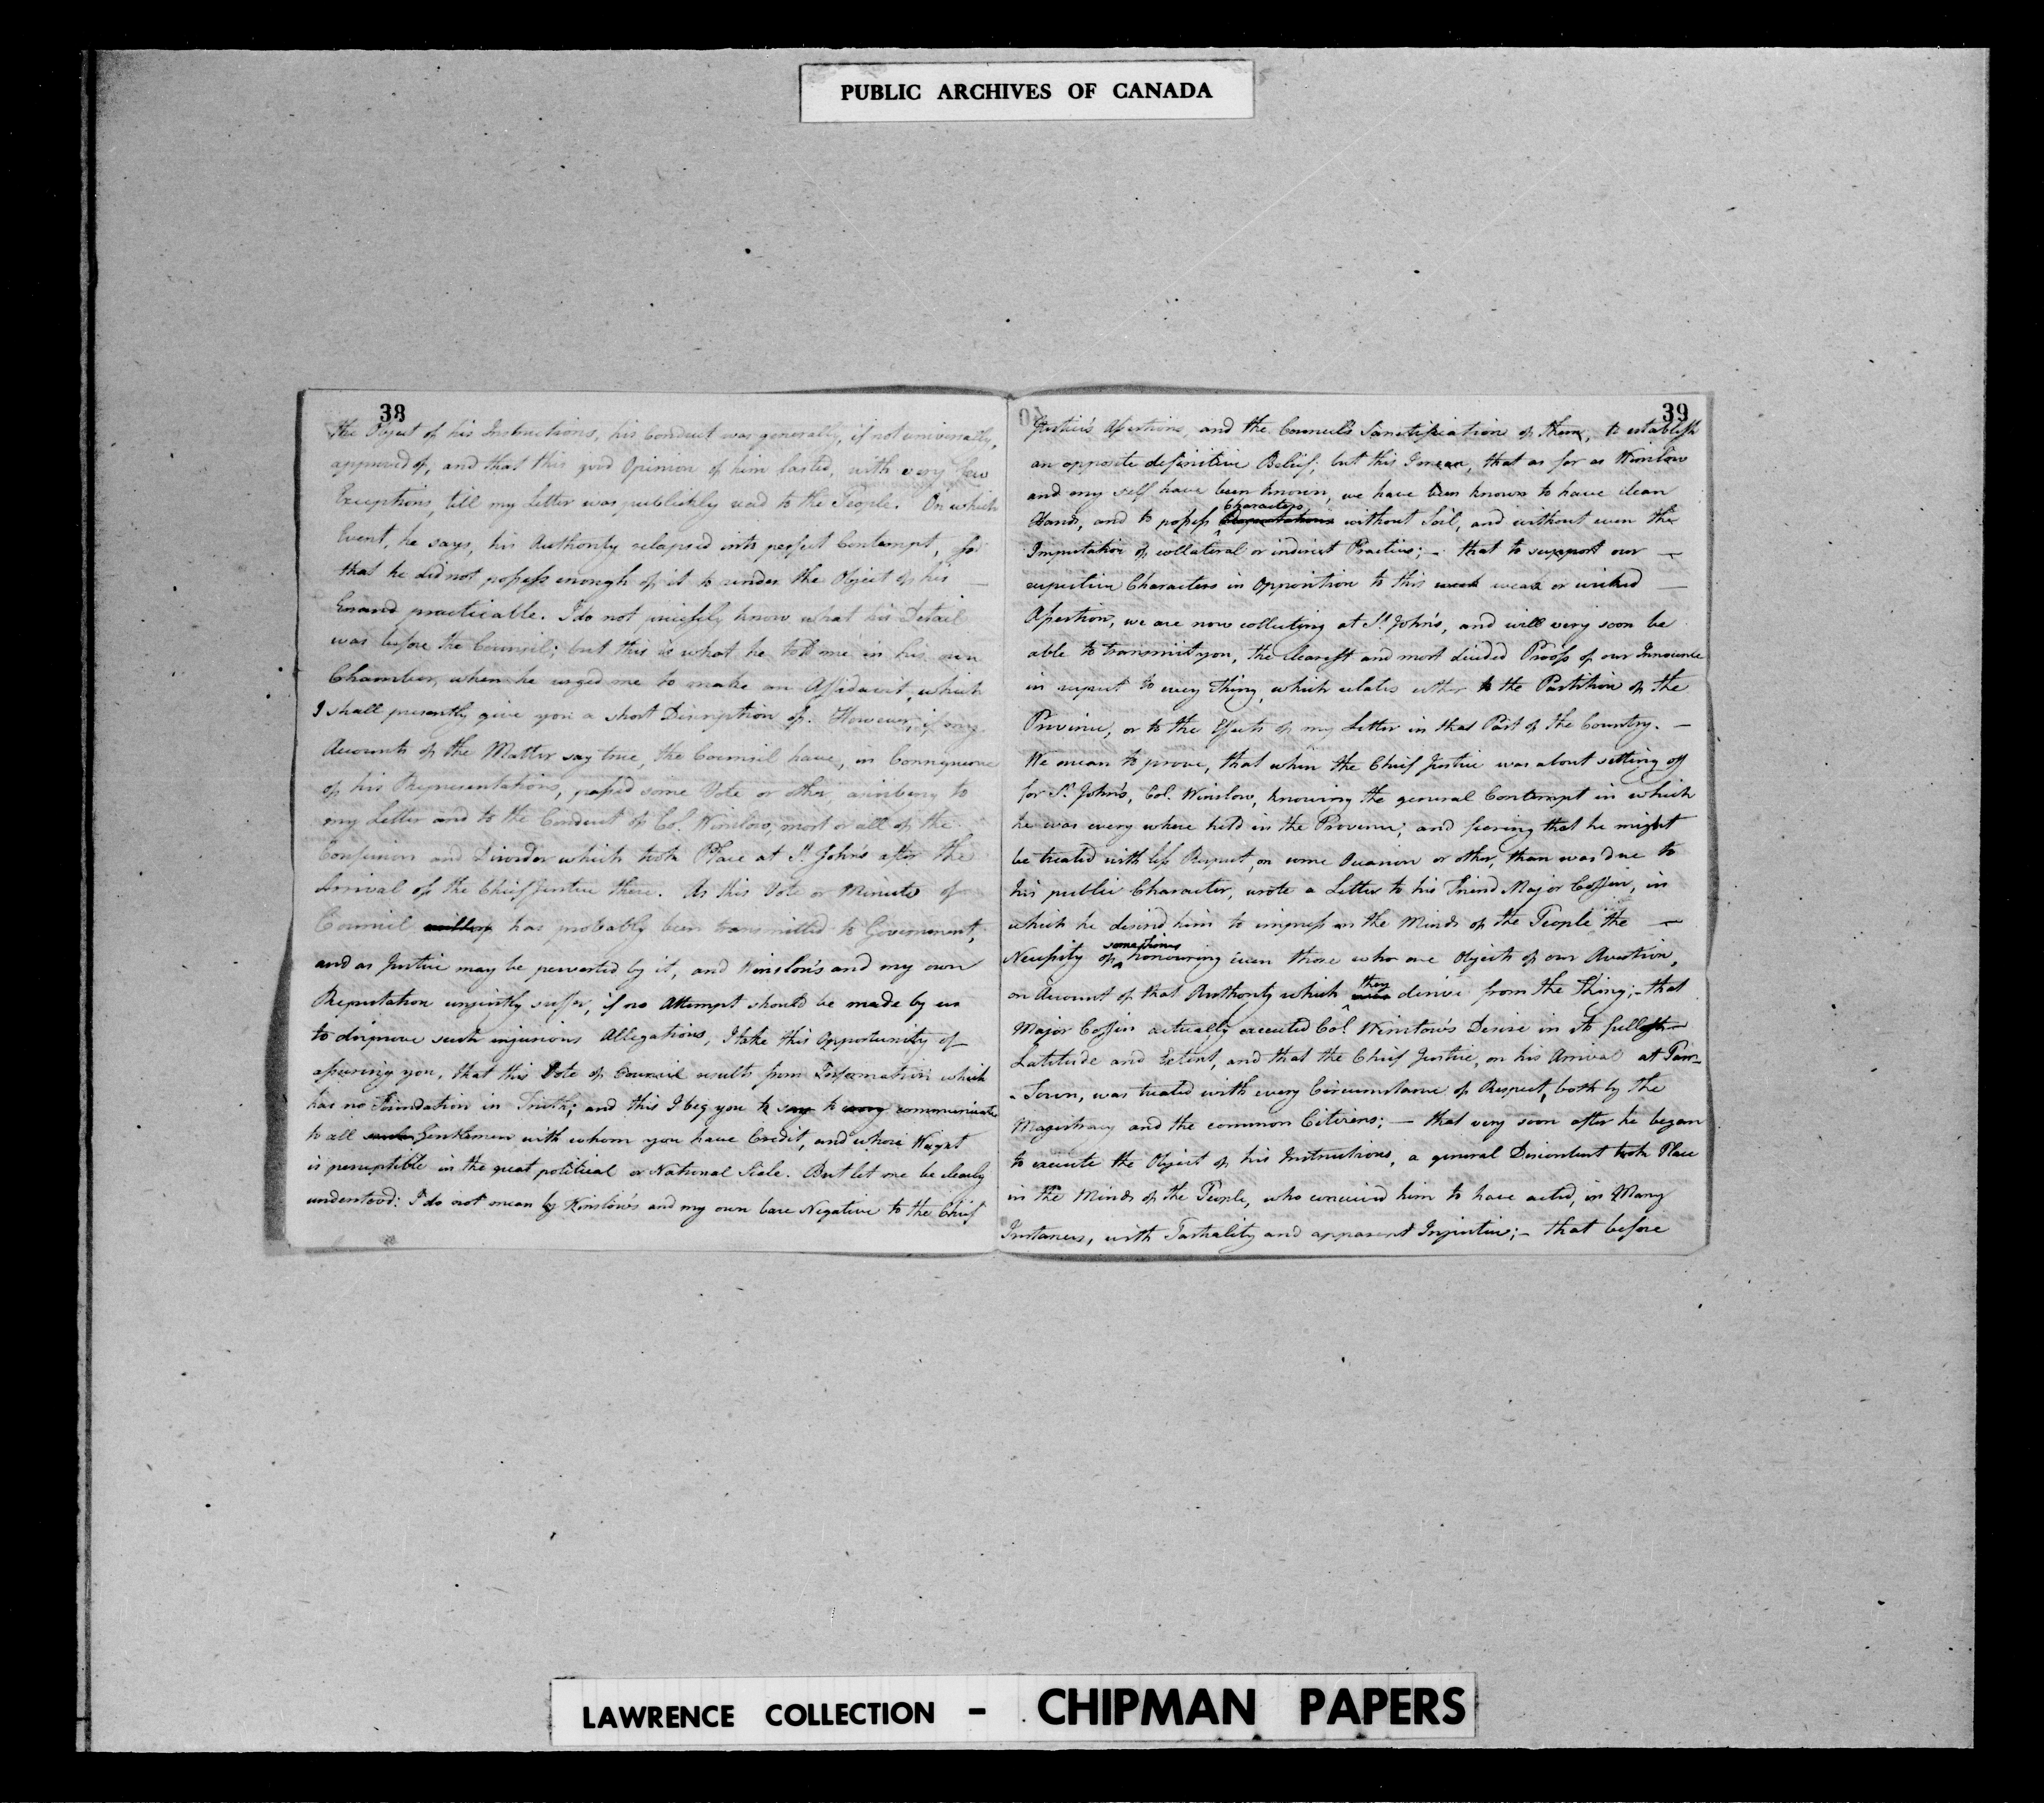 PUBLIC ARCHIVES OF CANADA
38
the Object of his Instructions, his Conduct was generally, if not universally,
approved of, and that this good Opinion of him lasted, with very few
Exceptions, till my Letter was publickly read to the People. On which
Event, he says, his Authority relapsed into perfect Contempt, so
that he did not possess enough of it to render the Object of his —
Errand practicable. I do not precisely know what his Detail
was before the Council; but this is what he told me in his own
Chamber, when he urged me to make an Affidavit, which
I shall presently give you a short Discription of. However, if my
Accounts of the Matter say true, the Council have, in Consequence
of his Representations, passed some Vote or other, ascribing to
my Letter and to the Conduct of Col. Winslow, most or all of the
Confusion and Disorder which took Place at St. John's after the
Arrival of the Chief Justice there. As this Vote or Minute of
Council has probably been transmitted to Government,
and as Justice may be perverted by it, and Winslow's and my own
Reputation unjustly suffer, if no Attempt should be made by us
to disprove such injurious Allegations, I take this Opportunity of
assuring you, that this Vote of Council results from Information which
has no Foundation in Truth; and this I beg you to say to communicate
to all such Gentlemen with whom you have Credit, and whose Weight
is perceptible in the great political or National Scale. But let me be clearly
understood: I do not mean by Winslow's and my own bare Negative to the Chief
39
Justice's Assertions, and the Council's Sanctification of them, to establish
an opposite definitive Belief; but this I mean, that as far as Winslow
and my self have been known, we have been known to have clean
Hands, and to possess Characters Reputations without Soil, and without even the
Imputation of collateral or indirect Practices; — that to support our —
respective Characters in Opposition to this weak or wicked —
Assertion, we are now collecting at St. John's, and will very soon be
able to transmit you, the clearest and most decided Proofs of our Innocence
in respect to every Thing, which relates either to the Partition of the
Province, or to the Effects of my Letter in that Part of the Country. —
We mean to prove, that when the Chief Justice was about setting off
for St. John's, Col. Winslow, knowing the general Contempt in which
he was every where held in the Province; and fearing that he might
be treated with less Respect, on some Occasion or other, than was due to
his public Character, wrote a Letter to his Friend Major Coffin, in
which he desired him to impress on the Minds of the People the —
Necessity of sometimes honouring even those who are Objects of our Aversion,
on Account of that Authority which they derive from the King; — that
Major Coffin actually executed Col. Winslow's Desire in its fullest —
Latitude and Extent, and that the Chief Justice, on his Arrival at Parr-
-Town, was treated with every Circumstance of Respect, both by the
Magistracy and the common Citizens; — that very soon after he began
to execute the Object of his Instructions, a general Discontent took Place
in the Minds of the People, who conceived him to have acted, in Many
Instances, with Partiality and apparent Injustice; — that before
LAWRENCE COLLECTION - CHIPMAN PAPERS